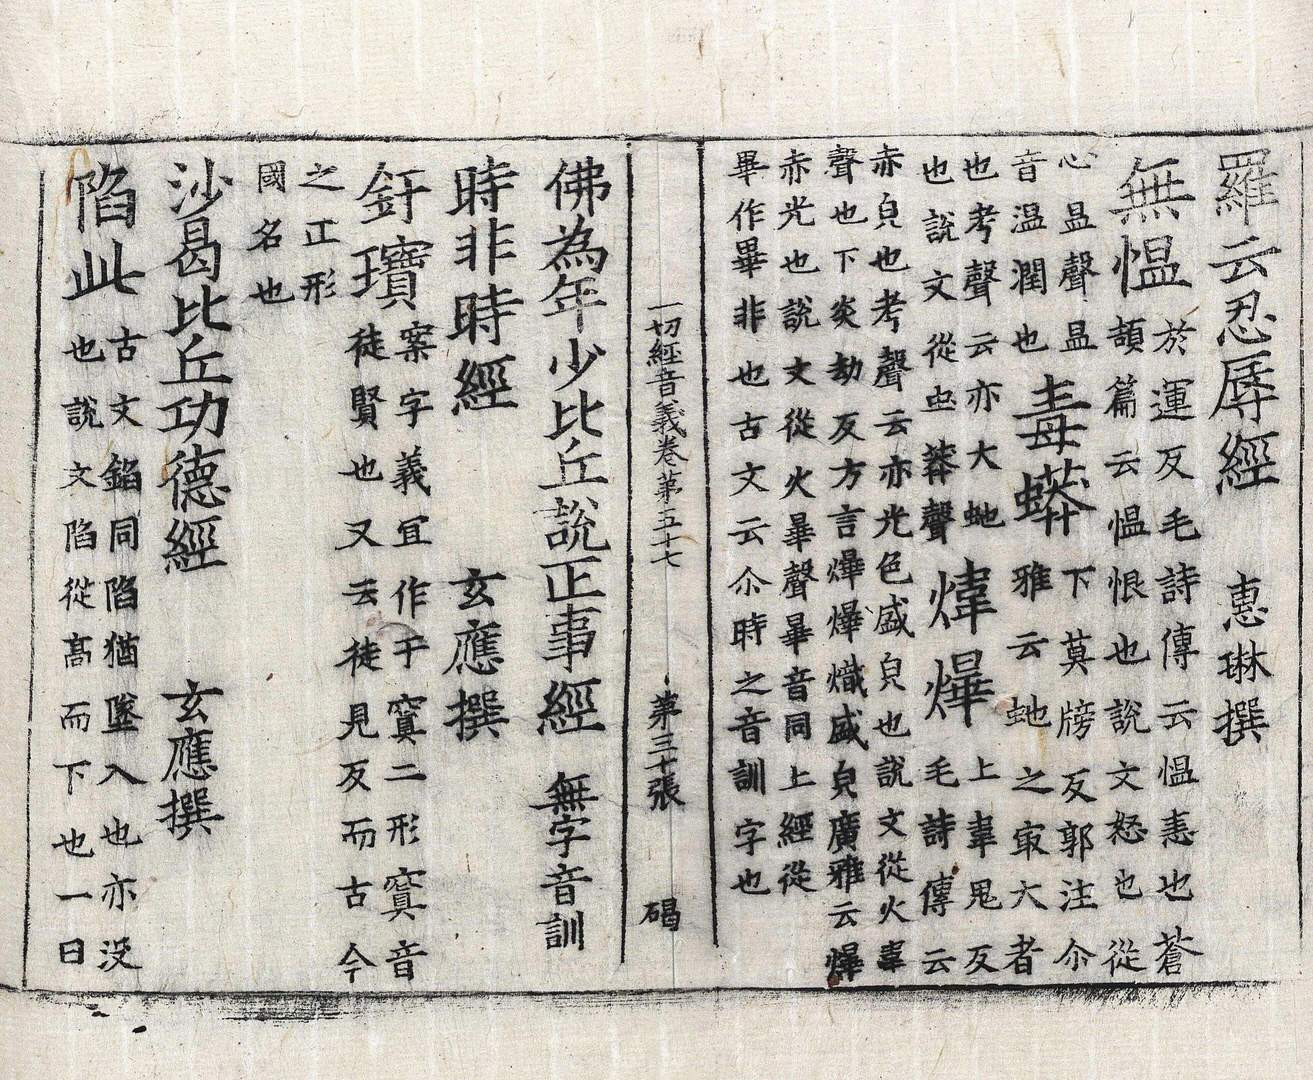 羅云忍辱經 惠琳撰
無愠 於運反毛詩傳云愠恚也蒼
頡篇云愠恨也說文怒也從
心昷聲昷
音温潤也 毒蟒 下莫牓反郭注尒
雅云虵之㝡大者
也考聲云亦大虵
也說文從虫莽聲 煒爗 上韋鬼反
毛詩傳云
赤皃也考聲云亦光色盛皃也說文從火韋
聲也下炎劫反方言爗爗熾盛皃廣雅云爗
赤光也說文從火畢聲畢音同上經從
畢作畢非也古文云尒時之音訓字也
一切經音義卷第五十七 第三十張 碣
佛為年少比丘說正事經 無字音訓
時非時經 玄應撰
釪 案字義宜作于窴二形窴音
徒賢也又云徒見反而古今
之正形
國名也
沙曷比丘功德經 玄應撰
陷此 古文錎同陷猶墜入也亦没
也說文陷從髙而下也一曰